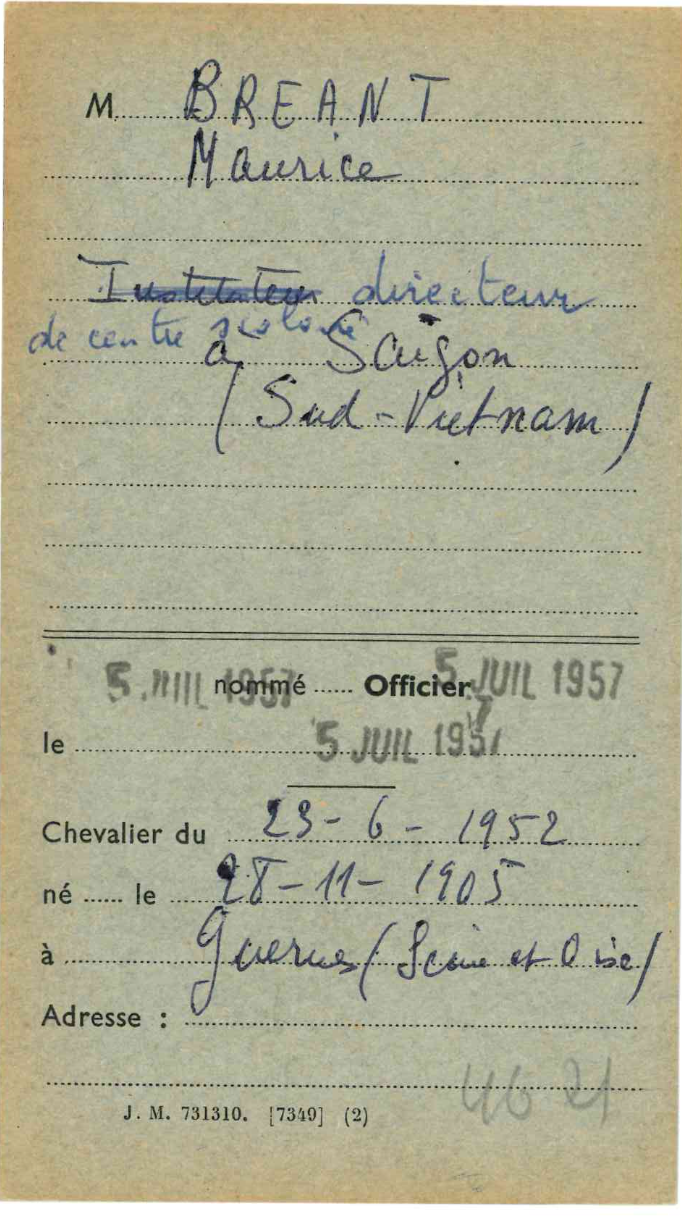 M. BREANT
Maurice
Instituteur directeur
de centre scolaire
à Saïgon
(Sud-Vietnam)
5 JUIL 1957 nommé ...... Officier 5 JUIL 1957
le 5 JUIL 1957
Chevalier du 23-6-1952
né ...... le 28-11-1905
à Guernes (Seine et Oise)
Adresse :
46 21
J. M. 731310. [7349] (2)